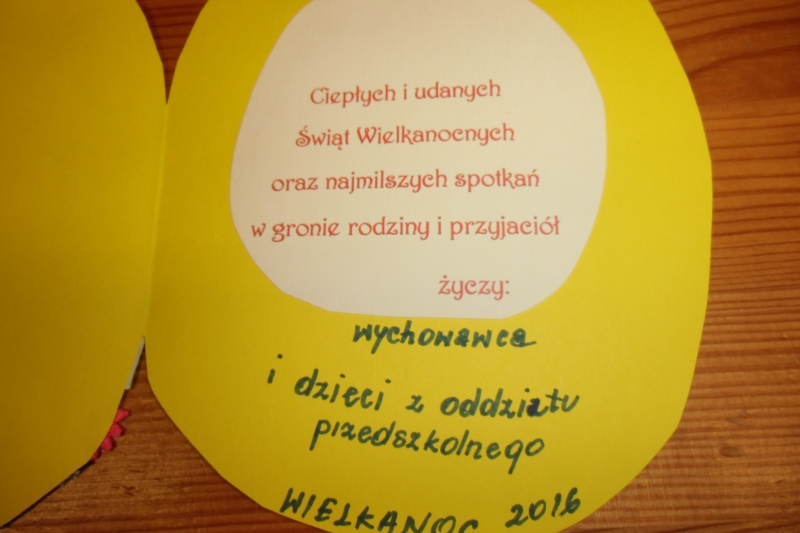 Ciepłych i udanych
Świąt Wielkanocnych
oraz najmilszych spotkań
w gronie rodziny i przyjaciół
życzy:
wychowawca
i dzieci z oddziału
przedszkolnego
WIELKANOC 2016